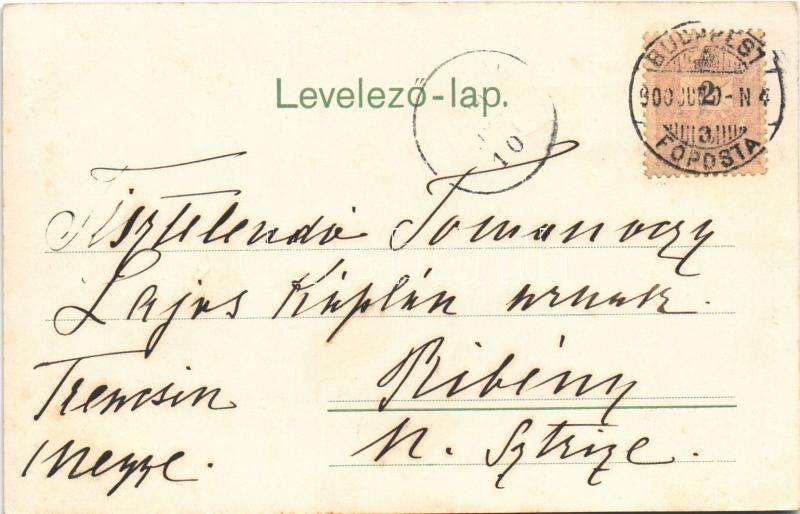 Levelező-lap.
BUDAPEST
900 JUN 9-N 4
2
3
FŐPOSTA
10
Tisztelendő Tomanoczy
Lajos Káplán urnak.
Ribény
Trencsin
megye.